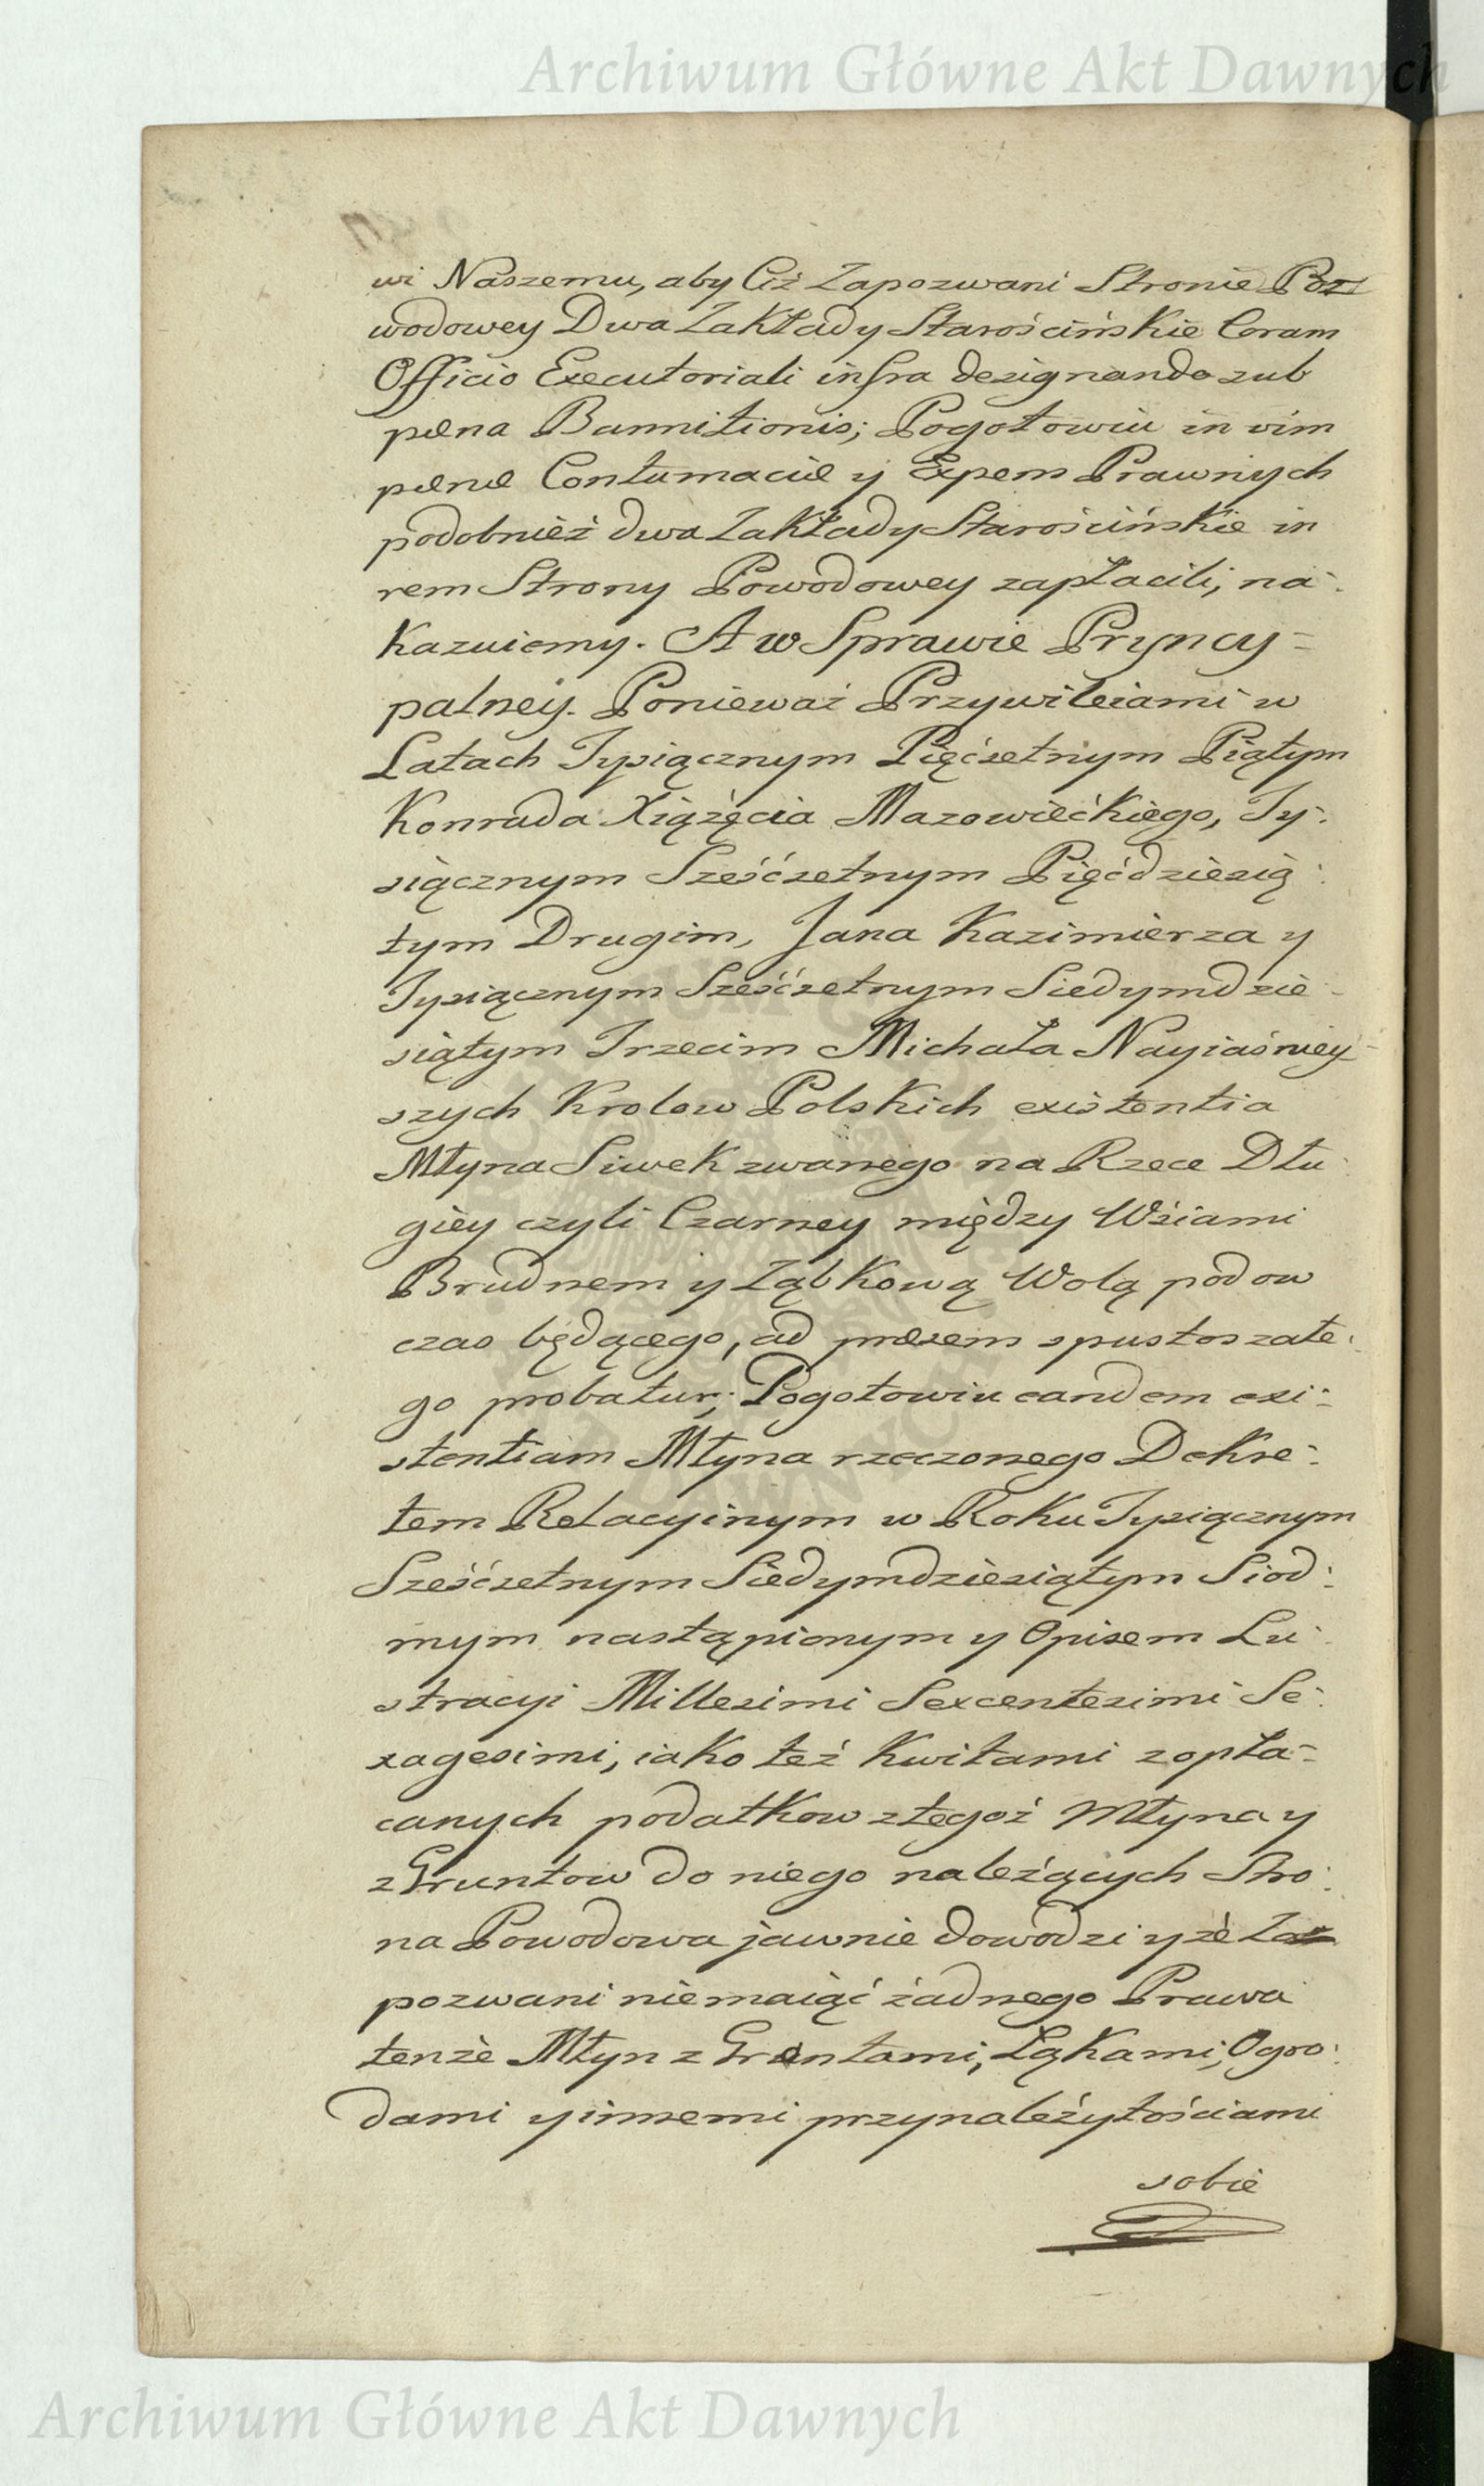 Archiwum Główne Akt Dawnych
wi Naszemu, aby Ciż Zapozwani Stronie Po=
wodowey Dwa Zakłady Starościńskie Coram
Officio Executoriali infra designando sub
pœna Bannitionis; Pogotowiu in vim
pœnæ Contumaciæ y Expens Prawnych
podobnież dwa Zakłady Starościńskie in
rem Strony Powodowey zapłacili, na:
kazuiemy. A w Sprawie Pryncy=
palney. Ponieważ Przywileiami w
Latach Tysiącznym Pięćsetnym Piątym
Konrada Xiążęcia Mazowieckiego, Ty:
siącznym Sześćsetnym Pięćdziesią:
tym Drugim, Jana Kazimierza y
Tysiącznym Sześćsetnym Siedymdzie-
siątym Trzecim Michała Nayiaśniey-
szych Krolow Polskich existentia
Młyna Siwek zwanego na Rzece Dłu:
giey czyli Czarney między Wsiami
Brudnem y Ząbkową Wolą pod ow
czas będącego, ad præsens spustoszałe:
go probatur; Pogotowiu eandem exi:
stentiam Młyna rzeczonego Dekre:
tem Relacyinym w Roku Tysiącznym
Sześćsetnym Siedymdziesiątym Siod:
mym nastąpionym y Opisem Lu:
stracyi Millesimi Sexcentesimi Se:
xagesimi, iako też Kwitami z opła=
canych podatkow z tegoż Młyna y
z Gruntow do niego należących Stro:
na Powodowa jawnie dowodzi y że Za=
pozwani niemaiąć żadnego Prawa
tenże Młyn z Gruntami, Łąkami, Ogro:
dami y innemi przynależytościami
sobie
Archiwum Główne Akt Dawnych